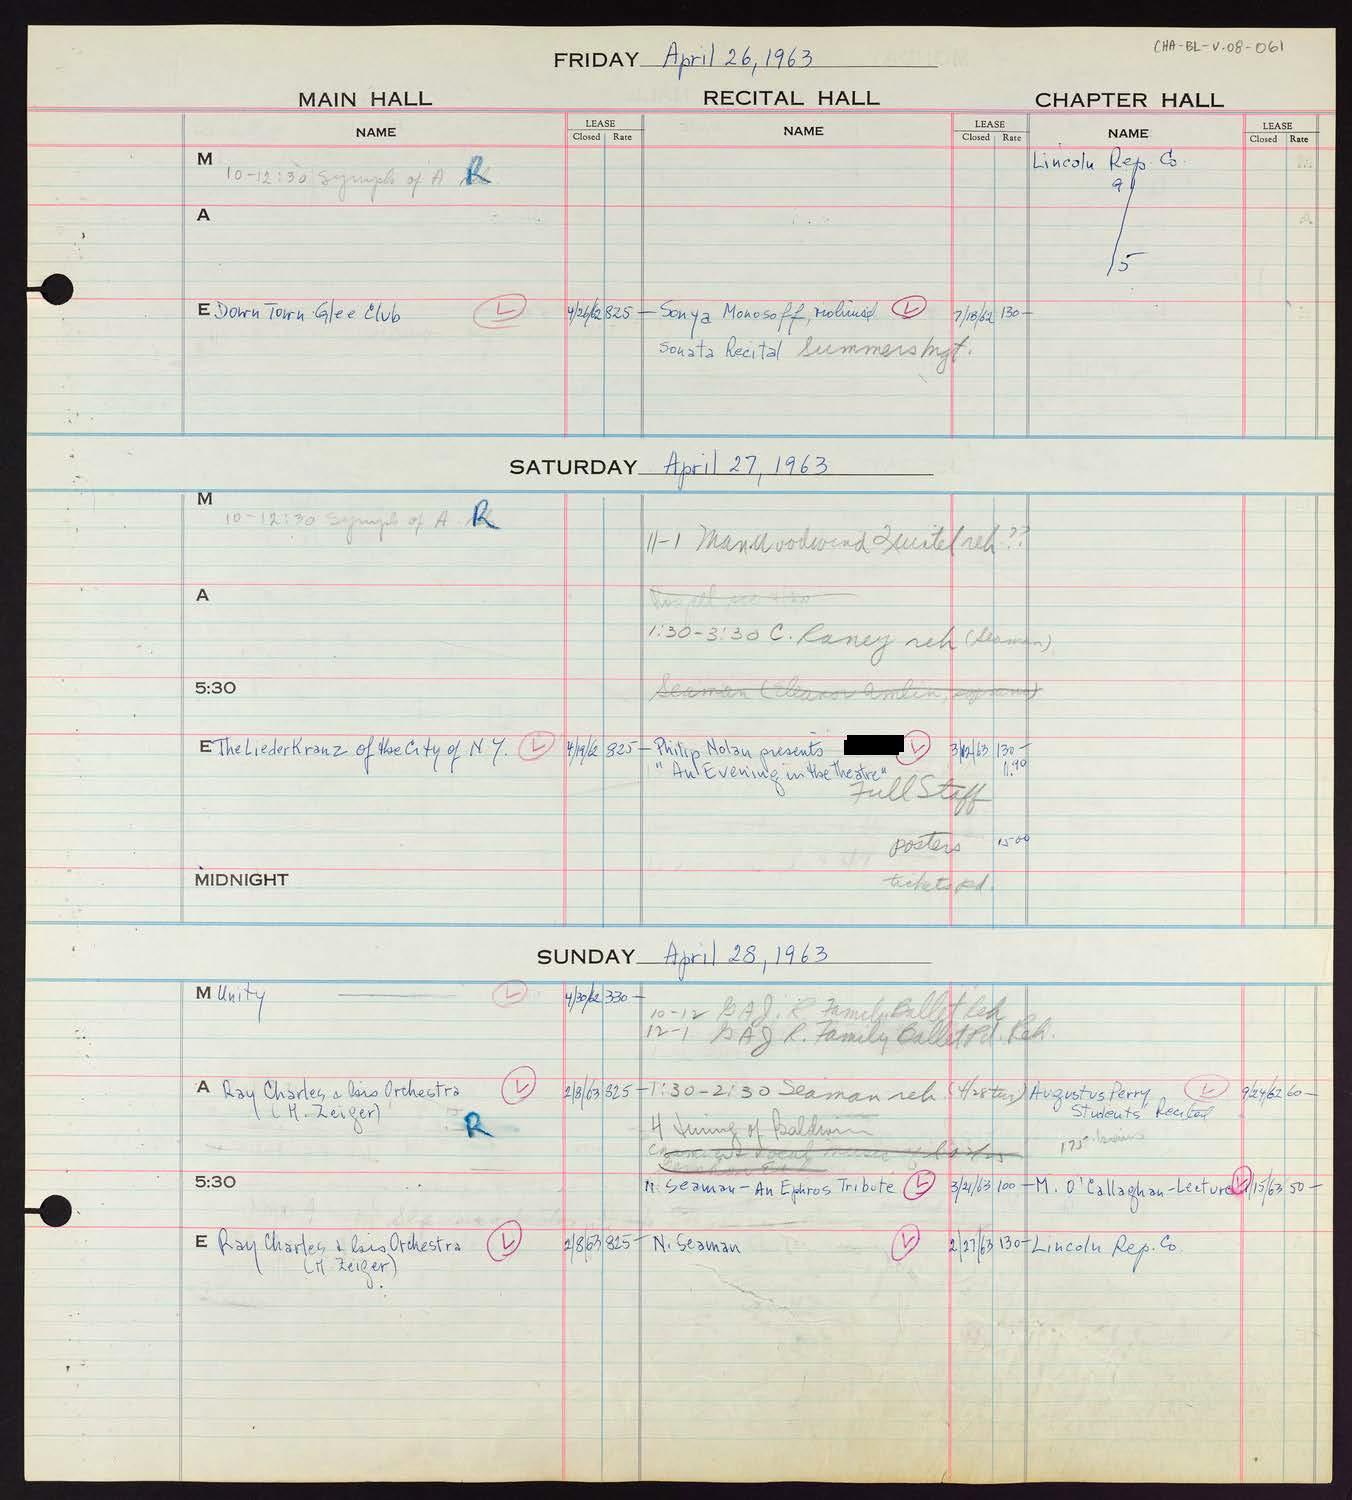 CHA-BL-V-08-061
FRIDAY April 26, 1963
MAIN HALL RECITAL HALL CHAPTER HALL
NAME LEASE Closed Rate NAME LEASE Closed Rate NAME LEASE Closed Rate
M Lincoln Rep. Co.
10-12:30 Symph of A R 9
A
5
E Down Town Glee Club L 4/26/62 825 — Sonya Monosoff, violinist L 7/18/62 130 —
Sonata Recital Summers Mgt.
SATURDAY April 27, 1963
M
10-12:30 Symph of A R
11-1 Woodwind Quintet reh ??
A
1:30-3:30 C. Raney reh (Seaman)
5:30 Seaman (Eleanor Amlin, soprano)
E The LiederKranz of the City of N.Y. L 4/19/62 825 — Philip Nolan presents L 3/12/63 130 —
"An Evening in the Theatre" 11.90
Full Staff
posters 15.00
MIDNIGHT tickets pd.
SUNDAY April 28, 1963
M Unity L 4/30/62 330 —
10-12 G A J. R. Family Ballet Reh
12-1 G A J R. Family Ballet Pd. Reh.
A Ray Charles & his Orchestra L 2/8/63 825 — 1:30-2:30 Seaman reh Augustus Perry L 9/24/62 60 —
(M. Zeiger) Students' Recital
R 4 Tuning of Baldwin
175
5:30 N. Seaman - An Ephros Tribute L 3/21/63 100 — M. O'Callaghan - Lecture L 1/15/63 50 —
E Ray Charles & his Orchestra L 2/8/63 825 — N. Seaman L 2/27/63 130 — Lincoln Rep. Co.
(M. Zeiger)